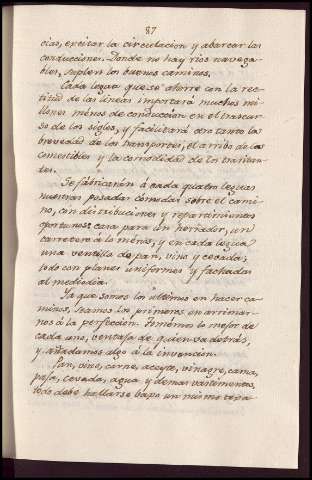 87
cias, excitar la circulacion y abaratar las
conducciones. Donde no hay rios navega-
bles, suplen los buenos caminos.
Cada legua que se ahorre con la rec-
titud de las lineas importará muchos mi-
llones ménos de conduccion en el transcur-
so de los siglos, y facilitará con tanto la
brevedad de los transportes, el arribo de los
comestibles y la comodidad de los traitan-
tes.
Se fabricarán á cada quatro leguas
nuestras posadas cómodas sobre el cami-
no, con distribuciones y repartimientos
oportunos: casa para un herrador, un
carretero á lo ménos, y en cada legua
una ventilla de pan, vino y cevada;
todo con planes uniformes y fachadas
al mediodia.
Ya que somos los últimos en hacer ca-
minos, seamos los primeros en arrimar-
nos á la perfeccion. Tomémos lo mejor de
cada uno, ventaja de quien va detrás,
y añadamos algo á la invencion.
Pan, vino, carne, aceyte, vinagre, cama,
paja, cevada, agua y demas bastimentos,
todo debe hallarse baxo un mismo texa-